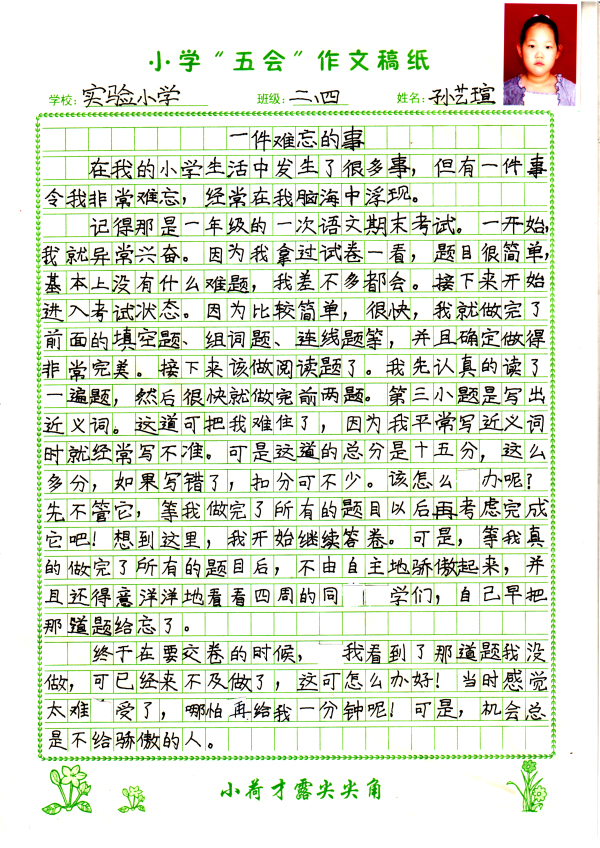 小学“五会”作文稿纸
学校：实验小学 班级：二、四 姓名：孙艺瑄
一件难忘的事
在我的小学生活中发生了很多事，但有一件事
令我非常难忘，经常在我脑海中浮现。
记得那是一年级的一次语文期末考试。一开始，
我就异常兴奋。因为我拿过试卷一看，题目很简单，
基本上没有什么难题，我差不多都会。接下来开始
进入考试状态。因为比较简单，很快，我就做完了
前面的填空题、组词题、连线题等，并且确定做得
非常完美。接下来该做阅读题了。我先认真的读了
一遍题，然后很快就做完前两题。第三小题是写出
近义词。这道可把我难住了，因为我平常写近义词
时就经常写不准。可是这道的总分是十五分，这么
多分，如果写错了，扣分可不少。该怎么 办呢？
先不管它，等我做完了所有的题目以后再考虑完成
它吧！想到这里，我开始继续答卷。可是，等我真
的做完了所有的题目后，不由自主地骄傲起来，并
且还得意洋洋地看看四周的同 学们，自己早把
那道题给忘了。
终于在要交卷的时候， 我看到了那道题我没
做，可已经来不及做了，这可怎么办好！当时感觉
太难 受了，哪怕再给我一分钟呢！可是，机会总
是不给骄傲的人。
小荷才露尖尖角